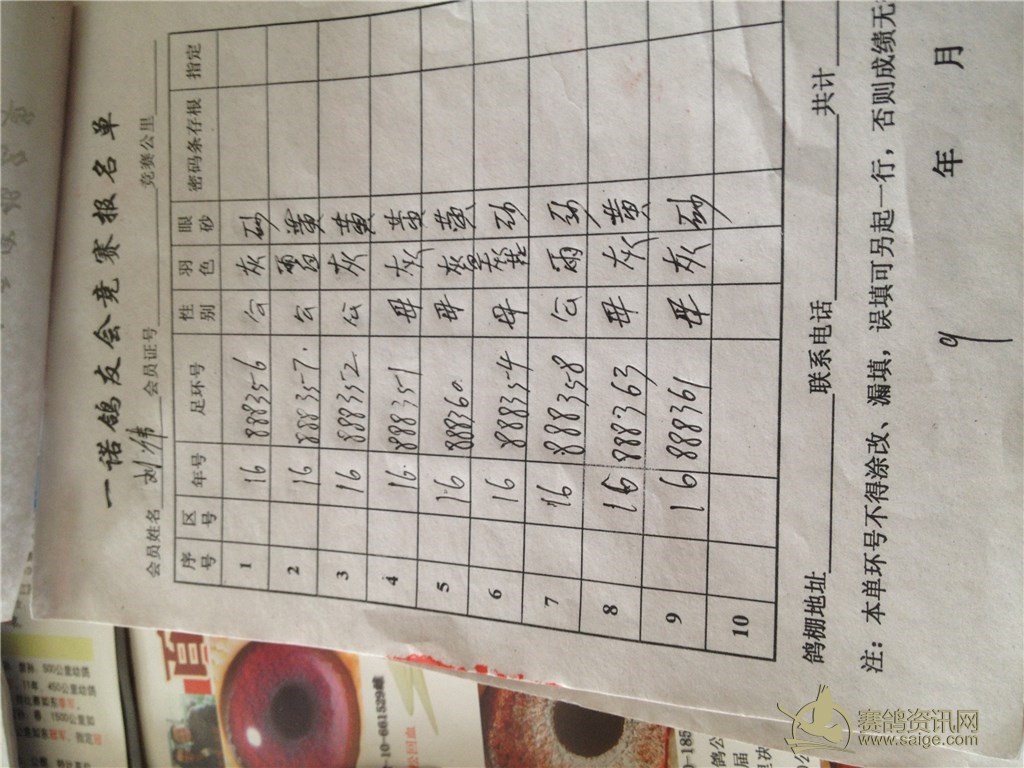 一诺鸽友会竞赛报名单
会员姓名 刘伟 会员证号 竞赛公里
序号 区号 年号 足环号 性别 羽色 眼砂 密码条存根 指定
1 16 888356 公 灰 砂
2 16 888357. 公 黄
3 16 888352 公 灰 黄
4 16. 888351 母 灰 黄
5 16 888360. 母 灰 黄
6 16 888354 母 砂
7 16 888358 公 雨 砂
8 16 888363 母 灰 黄
9 16 888361 母 灰 砂
10
鸽棚地址 联系电话 共计
注：本单环号不得涂改、漏填，误填可另起一行，否则成绩无
年 月
9
500公里幼鸽
450公里幼鸽
1500公里
10-661829雌
-185
赛鸽资讯网
www.saige.com